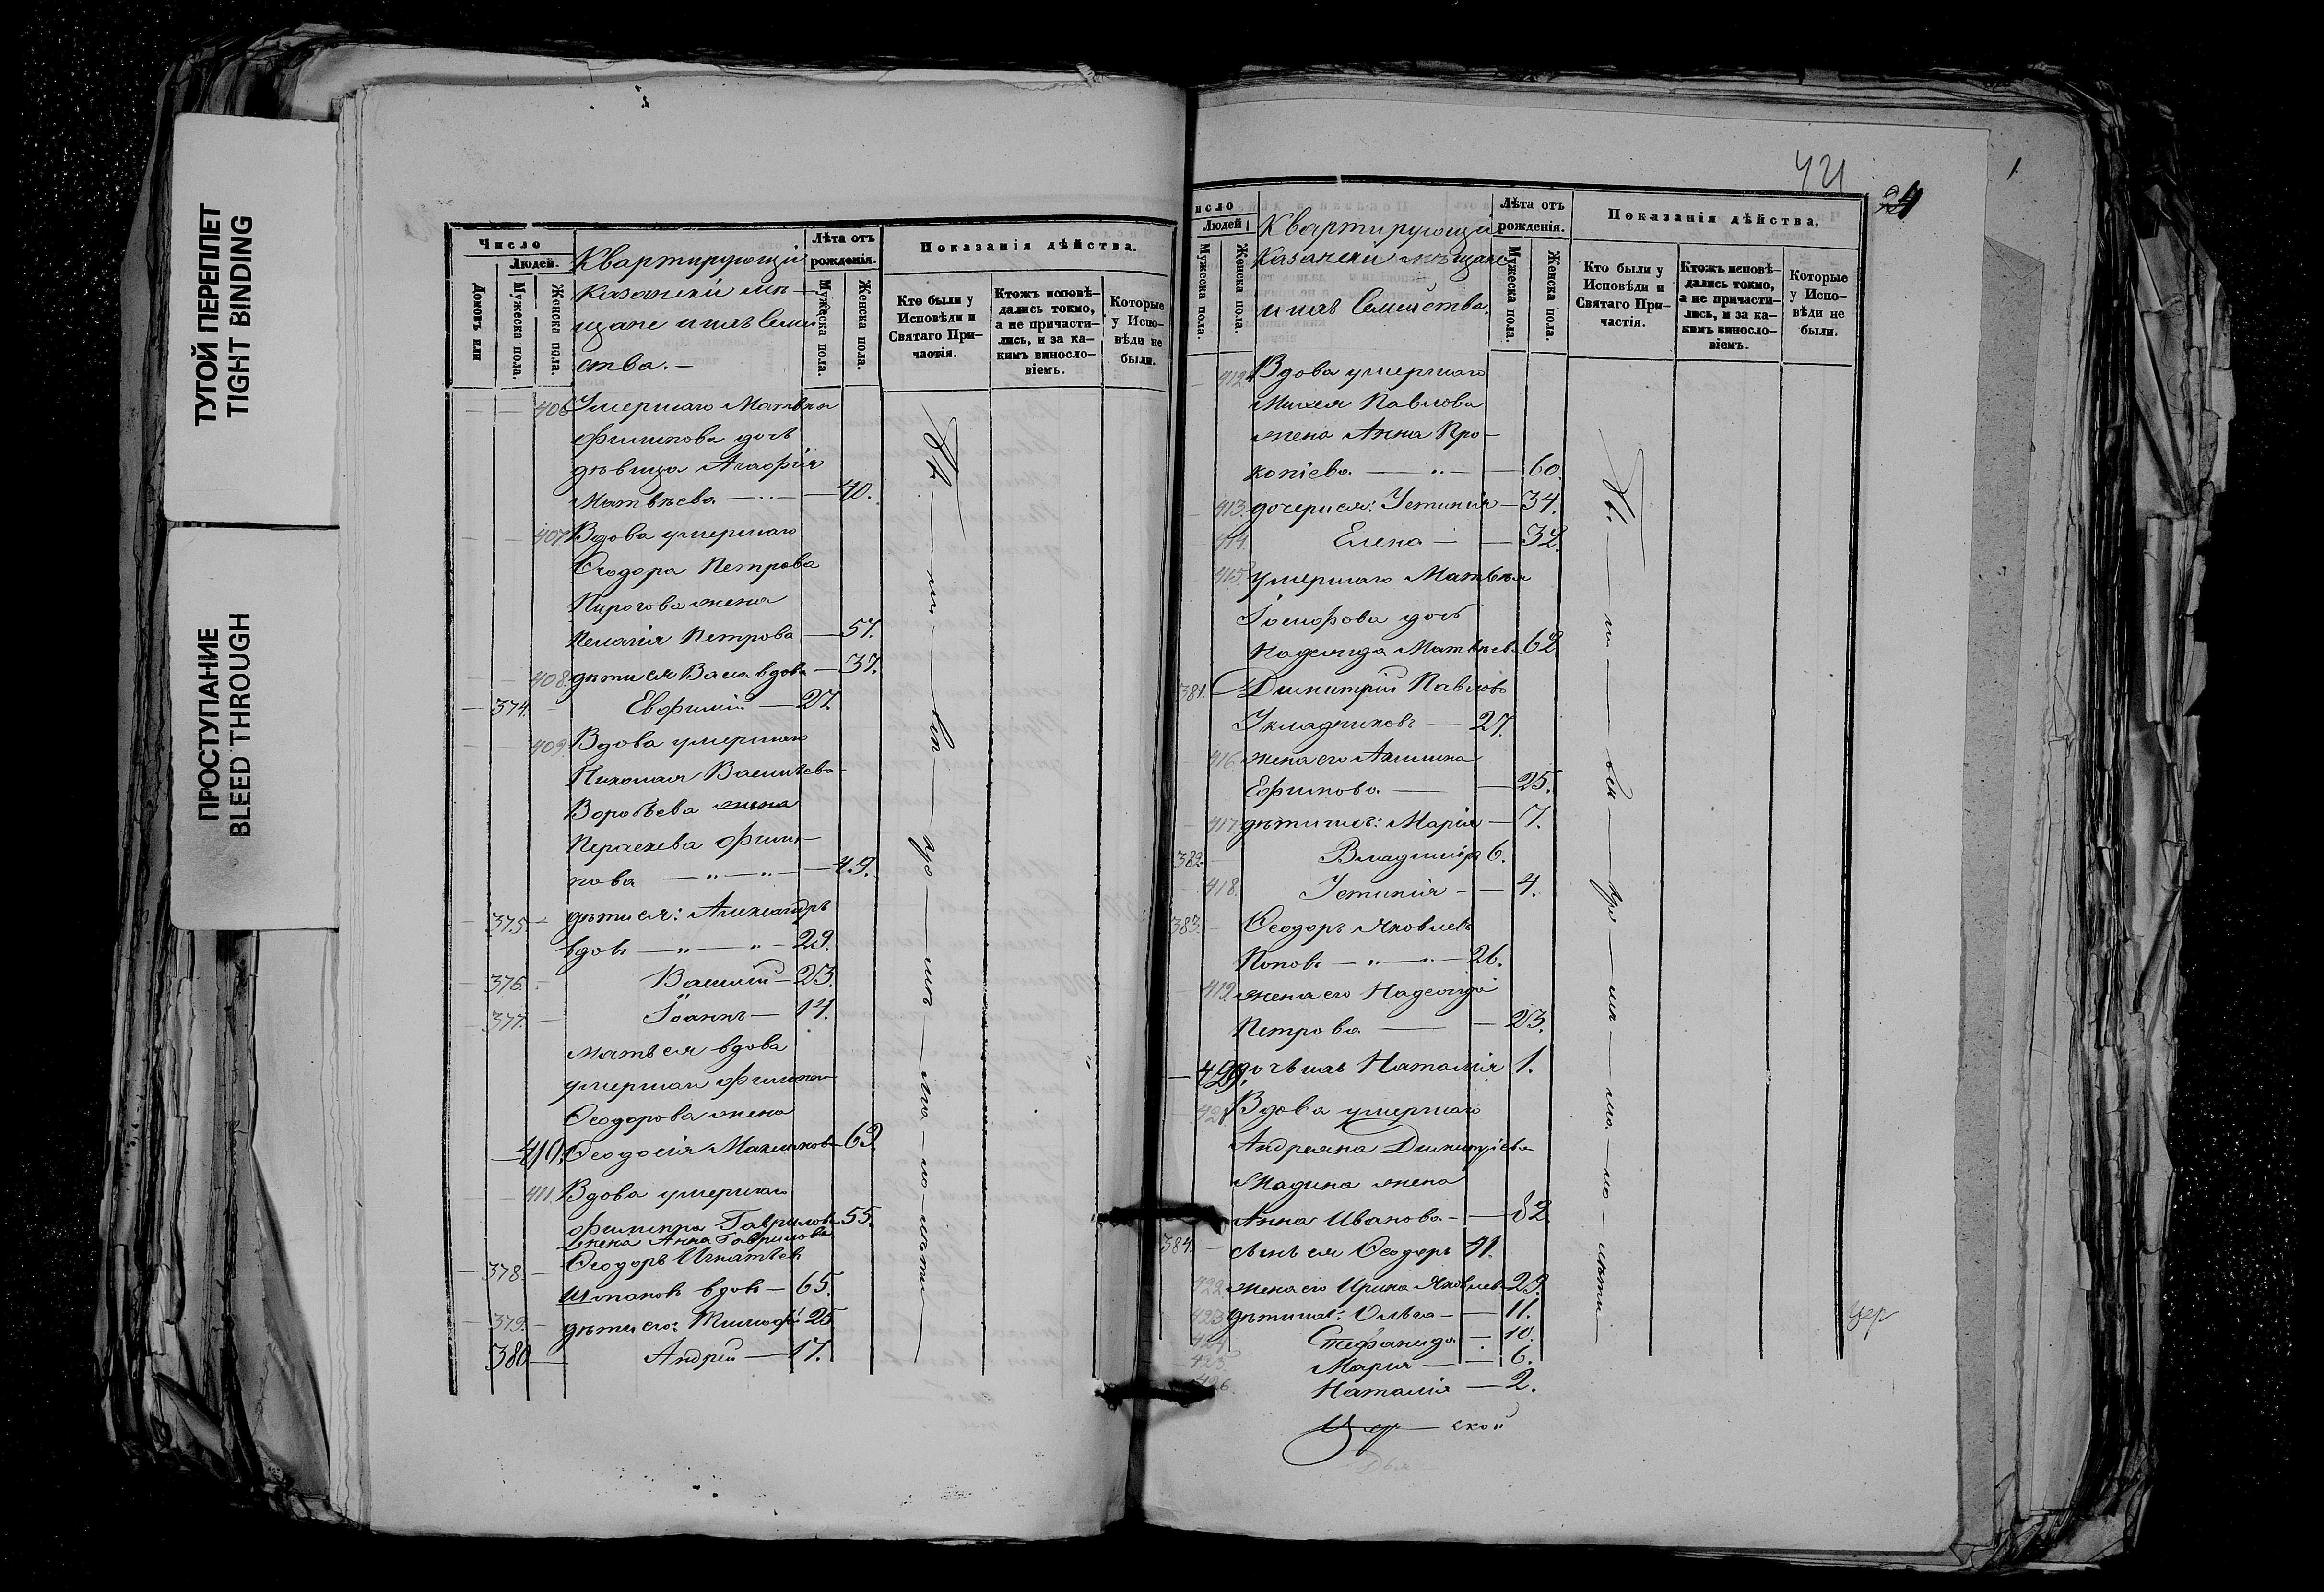 ТУГОЙ ПЕРЕПЛЕТ
TIGHT BINDING
ПРОСТУПАНИЕ
BLEED THROUGH
Число
Людей.
Домовъ или
Мужеска пола.
Женска пола.
Квартирующіи
Казанскіи мѣ-
щане и ихъ Семей
ства. -
Лѣта отъ рожденія.
Мужеска пола.
Женска пола.
Показанія дѣйства.
Кто были у Исповѣди и Святаго Причастія.
Ктожъ исповѣдались токмо, а не причастились, и за какимъ винословіемъ.
Которые у Исповѣди не были.
406 Умершаго Матвѣя
Филипова дочь
дѣвица Агафія
Матвѣева — 40.
407 Вдова умершаго
Ѳеодора Петрова
Пирогова жена
Пелагія Петрова — 57.
408. дѣти ея Васса вдова — 37.
374. Евфимій — 27.
409. Вдова умершаго
Николая Васильева
Воробьева жена
Параскева Филип-
пова — 49.
375. дѣти ея: Александръ
вдовъ — 29.
376. Василій — 23.
377. Іоаннъ — 14.
Мать ея вдова
умершаго Филиппа
Ѳеодорова жена
410. Ѳеодосія Максимова 69.
411. Вдова умершаго
Филиппа Гаврилова 55.
жена Анна Гаврилова
378. Ѳеодоръ Игнатьевъ
вдовъ — 65.
379. дѣти его: Тимофей 25
380 Андрей — 17.
421
24
исло
Людей
Мужеска пола.
Женска пола.
Квартирующіи
Казанскіи мѣщане
и ихъ Семейства.
Лѣта отъ рожденія.
Мужеска пола.
Женска пола.
Показанія дѣйства.
Кто были у Исповѣди и Святаго Причастія.
Ктожъ исповѣдались токмо, а не причастились, и за какимъ винословіемъ.
Которые у Исповѣди не были.
412. Вдова умершаго
Михея Павлова
жена Анна Про-
копіева — 60.
413. дочери ея: Устинія — 34.
414. Елена — 32.
415. умершаго Матвѣя
Іосифова дочь
Надежда Матвѣева 62
381. Димитрій Павловъ
Укладниковъ — 27.
416. жена его Акилина
Ефимова — 25.
417 дѣти ихъ: Марія — 7.
382. Владиміръ 6.
418. Устинія — 4.
383. Ѳеодоръ Яковлевъ
Поповъ — 26.
419. жена его Надежда
Петрова — 23.
420. дочь ихъ Наталія 1.
421 Вдова умершаго
Андреяна Димитріева
жена
Анна Иванова — 82.
384. сынъ ея Ѳеодоръ 41.
422. жена его Ирина Яковлева 29.
423 дѣти ихъ: Ольга — 11.
424 Стефанида — 10.
425. Марія — 6.
426. Наталія — 2.
Цер — ской
Цер